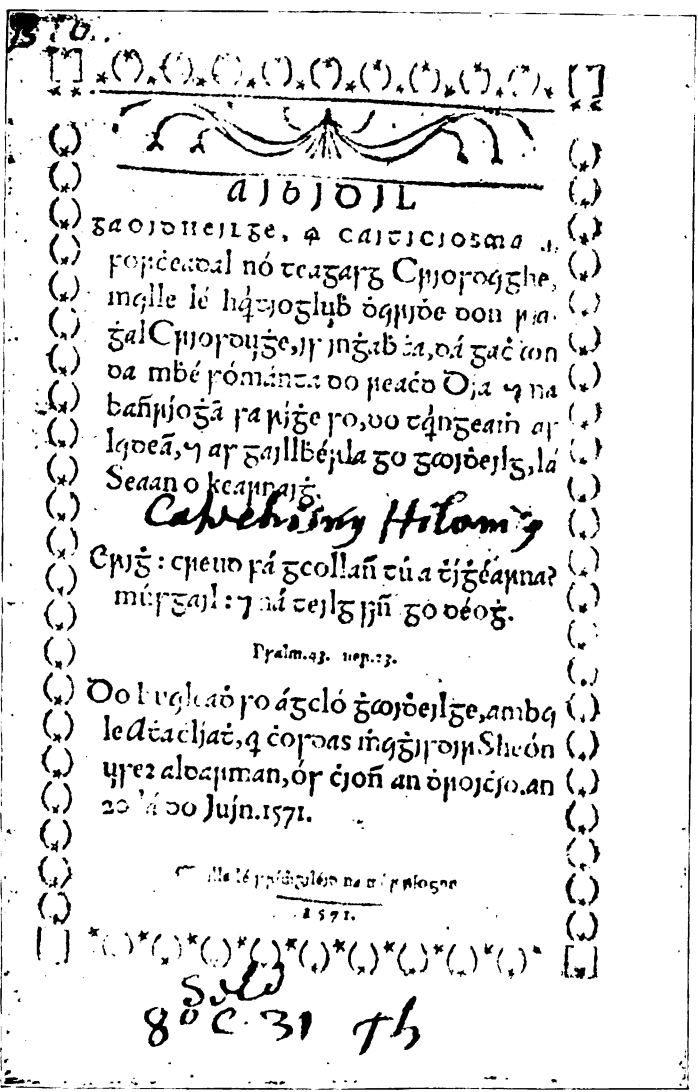 Aibidil
gaoidheilge, ⁊ caiticiosma .i.
foircheadal nó teagasg Criosdaighe,
maille lé hairtioghluibh dairidhe don ria-
ghal Criosduighe, is inghabhtha, dá gach aon
da mbé fómánta do reachd Dia ⁊ na
bannrioghan sa ríghe so, do tairngeamh as
laidean, ⁊ as gaillbhérla go gaoidheilg, lá
Seaan o kearnaigh.
Catechismy Hibernis
Erigh: creud fá gcollann tú a thighéarna?
músgail: ⁊ ná teilg sinn go déogh.
Psalm. 43. uer. 23.
Do buaileadh so ágcló ghaoidheilge, ambaile
Atachliath, ar chosdas mhaighisdir Sheón
uiser aldarman, ós chionn an dhroichid. an
20 lá do Juin. 1571.
1571.
8º C. 31 Th